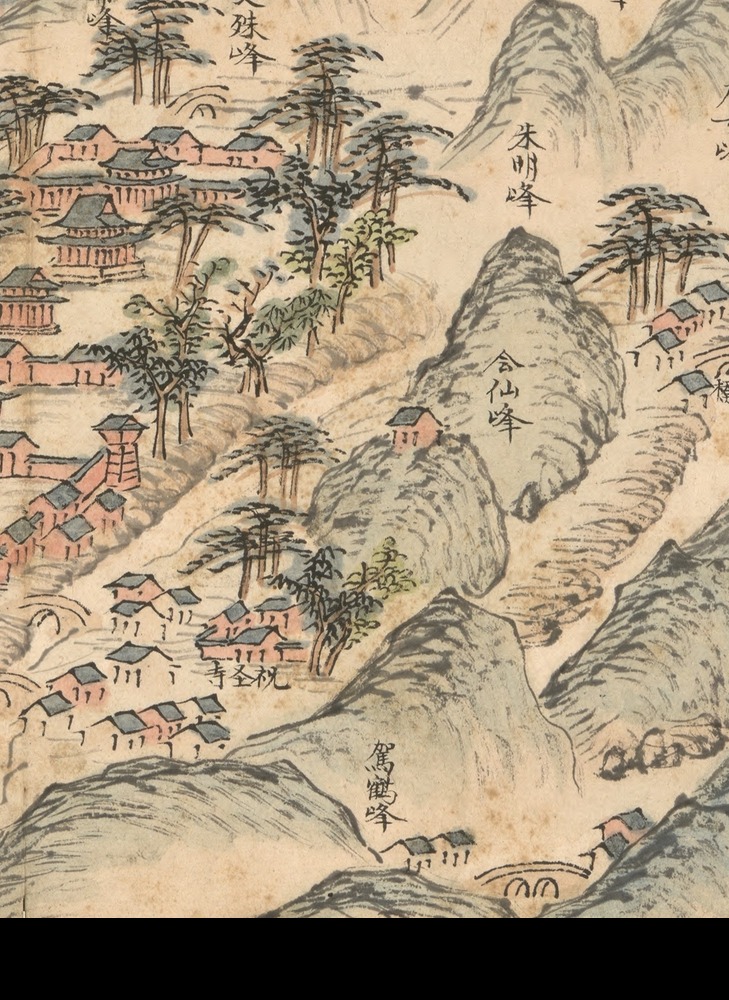 殊峰
峰
朱明峰
会仙峰
祝圣寺
駕鶴峰